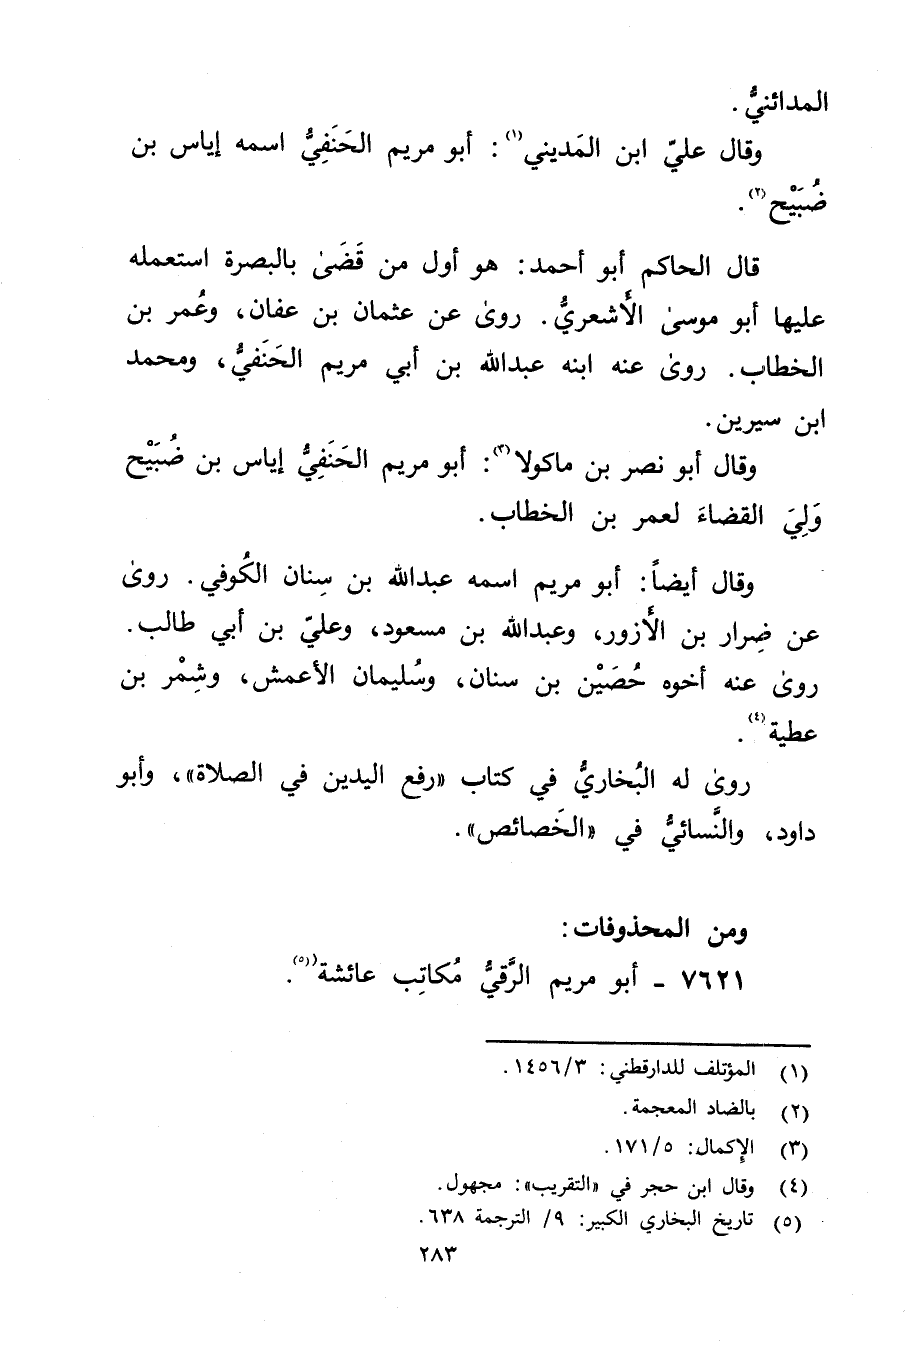 المدائنيُّ .
وقال عليّ ابن المَديني(١): أبو مريم الحَنَفِيُّ اسمه إياس بن
ضُبَيْح(٢).
قال الحاكم أبو أحمد: هو أول من قَضَىٰ بالبصرة استعمله
عليها أبو موسىٰ الأَشعريُّ. روىٰ عن عثمان بن عفان، وعُمر بن
الخطاب. روىٰ عنه ابنه عبدالله بن أبي مريم الحَنَفيُّ، ومحمد
ابن سيرين.
وقال أبو نصر بن ماكولا(٣): أبو مريم الحَنَفِيُّ إياس بن ضُبَيْح
وَلِيَ القضاءَ لعمر بن الخطاب.
وقال أيضاً: أبو مريم اسمه عبدالله بن سِنان الكُوفي. روىٰ
عن ضِرار بن الأَزور، وعبدالله بن مسعود، وعليّ بن أبي طالب.
روىٰ عنه أخوه حُصَيْن بن سنان، وسُليمان الأعمش، وشِمْر بن
عطية(٤).
روىٰ له البُخاريُّ في كتاب «رفع اليدين في الصلاة»، وأبو
داود، والنَّسائيُّ في «الخَصائص».
ومن المحذوفات:
٧٦٢١ - أبو مريم الرَّقيُّ مُكاتِب عائشة(٥).
(١) المؤتلف للدارقطني: ١٤٥٦/٣.
(٢) بالضاد المعجمة.
(٣) الإكمال: ١٧١/٥.
(٤) وقال ابن حجر في «التقريب»: مجهول.
(٥) تاريخ البخاري الكبير: ٩/ الترجمة ٦٣٨.
٢٨٣